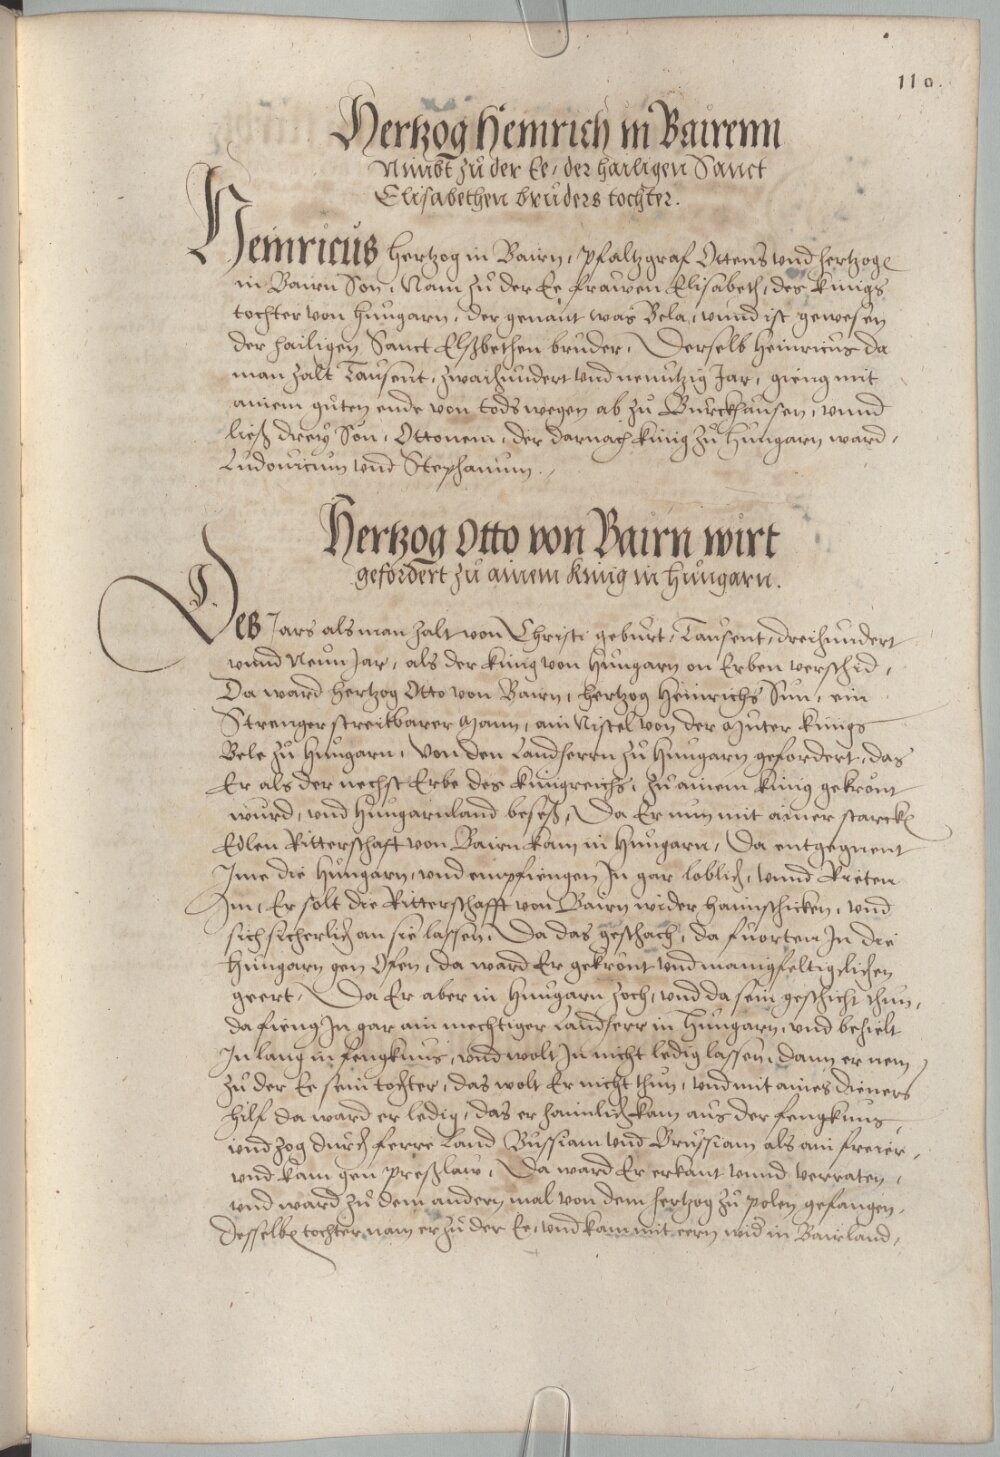 110.
Hertzog Heinrich in Bairenn
Nimbt zů der Ee, der hailigen Sanct
Elisabethen brůders tochter.
Heinricus hertzog in Bairn, Pfaltzgraf Ottens vnd hertzogs
in Bairn Son, Nam zů der Ee frawen Elisabeth, des kunigs
tochter von Hungarn, der genant was Bela, vnnd ist gewesen
der hailigen Sanct Elßbethen bruder. Derselb Heinricus da
man zalt Tausent, zwaihundert vnd neuntzig Jar, gieng mit
ainem gůten ende von tods wegen ab zů Burckhausen, vnnd
ließ dreÿ Son, Ottonem, der darnach kůnig zů Hungarn ward,
Ludovicum vnd Stephanum.
Hertzog Otto von Bairn wirt
gefordert zů ainem kunig in Hungarn.
Des Jars als man zalt von Christi geburt, Tausent, dreihundert
vnnd Neun Jar, als der kunig von Hungarn on Erben verschid,
Da ward hertzog Otto von Bairn, hertzog Heinrichs Sun, ein
Strenger streitbarer Mann, ain Nistel von der Muter kunigs
Bele zů Hungarn, von den Landherrn zů Hungarn gefordert, das
Er als der nechst Erbe des kunigreichs, zů ainem kunig gekrönt
wurd, vnd Hungarnland beseß, Da Er nun mit ainer starcken
Edlen Ritterschaft von Bairn kam in Hungarn, Da entgegnent
Ime die Hungarn, vnd empfiengen In gar loblich, vnnd Rieten
Im, Er solt die Ritterschafft von Bairn wider haimschicken, vnd
sich sicherlich an sie lassen, Da das geschach, da fuorten In die
Hungarn gen Ofen, da ward Er gekrönt vnd manigfeltigclichen
geert, Da Er aber in Hungarn zoch, vnd da sein geschicht thun,
da fieng In gar ain mechtiger Landherr in Hungarn, vnd behielt
In lang in fengknus, vnd wolt In nicht ledig lassen, dann er nem
zů der Ee sein tochter, das wolt Er nicht thun, vnd mit aines dieners
hilf da ward er ledig, das er haimlich kam aus der fengknus,
vnd zog durch ferre Land Bussiam vnd Brussiam als ain freier,
vnd kam gen Preßlaw, Da ward Er erkant vnnd verraten,
vnd ward zů dem andern mal von dem hertzog zů Polen gefangen,
desselben tochter nam er zů der Ee, vnd kam mit eern wider in Bairland,